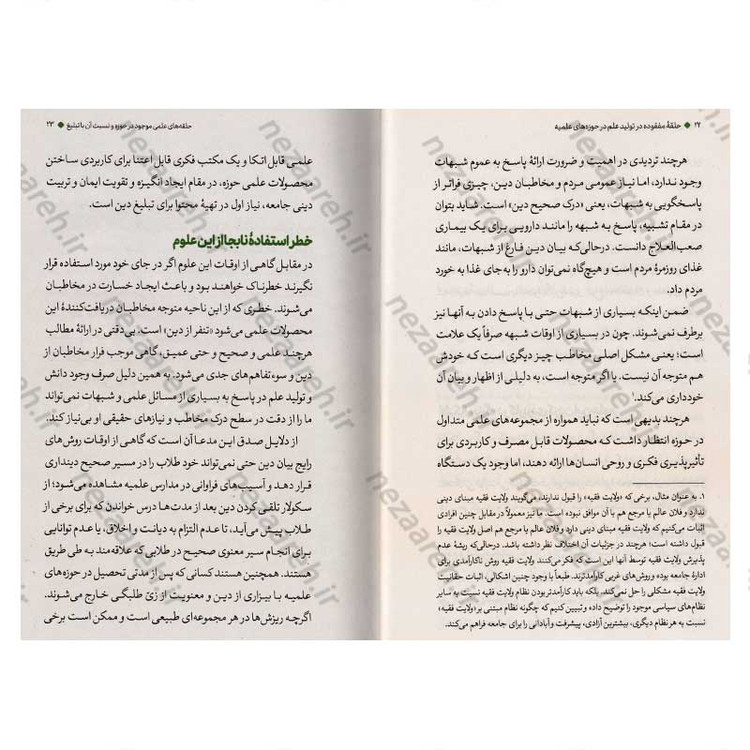 ۲۲ ◆ حلقهٔ مفقوده در تولید علم در حوزه‌های علمیه
هرچند تردیدی در اهمیت و ضرورت ارائهٔ پاسخ به عموم شبهات
وجود ندارد، اما نیاز عمومی مردم و مخاطبان دین، چیزی فراتر از
پاسخگویی به شبهات، یعنی «درک صحیح دین» است. شاید بتوان
در مقام تشبیه، پاسخ به شبهه را مانند دارویی برای یک بیماری
صعب‌العلاج دانست. درحالی‌که بیان دین فارغ از شبهات، مانند
غذای روزمرهٔ مردم است و هیچ‌گاه نمی‌توان دارو را به جای غذا به خورد
مردم داد.
ضمن اینکه بسیاری از شبهات حتی با پاسخ دادن به آنها نیز
برطرف نمی‌شوند. چون در بسیاری از اوقات شبهه صرفاً یک علامت
است؛ یعنی مشکل اصلی مخاطب چیز دیگری است که خودش
هم متوجه آن نیست. یا اگر متوجه است، به دلیلی از اظهار و بیان آن
خودداری می‌کند.۱
هرچند بدیهی است که نباید همواره از مجموعه‌های علمی متداول
در حوزه انتظار داشت که محصولات قابل مصرف و کاربردی برای
تأثیرپذیری فکری و روحی انسان‌ها ارائه دهند، اما وجود یک دستگاه
۱. به عنوان مثال، برخی که «ولایت فقیه» را قبول ندارند، می‌گویند ولایت فقیه مبنای دینی
ندارد و فلان عالم یا مرجع هم با آن موافق نبوده است. ما نیز معمولاً در مقابل چنین افرادی
اثبات می‌کنیم که ولایت فقیه مبنای دینی دارد و فلان عالم یا مرجع هم اصل ولایت فقیه را
قبول داشته است؛ هرچند در جزئیات آن اختلاف نظر داشته باشد. درحالی‌که ریشهٔ عدم
پذیرش ولایت فقیه توسط آنها این است که فکر می‌کنند ولایت فقیه روش ناکارآمدی برای
ادارهٔ جامعه بوده و روش‌های غربی کارآمدترند. طبعاً با وجود چنین اشکالی، اثبات حقانیت
ولایت فقیه مشکلی را حل نمی‌کند، بلکه باید کارآمدتر بودن نظام ولایت فقیه نسبت به سایر
نظام‌های سیاسی موجود را توضیح داده و تبیین کنیم که چگونه نظام مبتنی بر «ولایت فقیه»
نسبت به هر نظام دیگری، بیشترین آزادی، پیشرفت و آبادانی را برای جامعه فراهم می‌کند.
حلقه‌های علمی موجود در حوزه و نسبت آن با تبلیغ ◆ ۲۳
علمی قابل اتکا و یک مکتب فکری قابل اعتنا برای کاربردی ساختن
محصولات علمی حوزه، در مقام ایجاد انگیزه و تقویت ایمان و تربیت
دینی جامعه، نیاز اول در تهیهٔ محتوا برای تبلیغ دین است.
خطر استفادهٔ نابجا از این علوم
در مقابل گاهی از اوقات این علوم اگر در جای خود مورد استفاده قرار
نگیرند خطرناک خواهند بود و باعث ایجاد خسارت در مخاطبان
می‌شوند. خطری که از این ناحیه متوجه مخاطبان دریافت‌کنندهٔ این
محصولات علمی می‌شود «تنفر از دین» است. بی‌دقتی در ارائهٔ مطالب
هرچند علمی و صحیح و حتی عمیق، گاهی موجب فرار مخاطبان از
دین و سوءتفاهم‌های جدی می‌شود. به همین دلیل صرف وجود دانش
و تولید علم در پاسخ به بسیاری از مسائل علمی و شبهات نمی‌تواند
ما را از دقت در سطح درک مخاطب و نیازهای حقیقی او بی‌نیاز کند.
از دلایل صدق این مدعا آن است که گاهی از اوقات روش‌های
رایج بیان دین حتی نمی‌تواند خود طلاب را در مسیر صحیح دینداری
قرار دهد و آسیب‌های فراوانی در مدارس علمیه مشاهده می‌شود؛ از
سکولار تلقی کردن دین بعد از مدت‌ها درس خواندن که برای برخی از
طلاب پیش می‌آید، تا عدم التزام به دیانت و اخلاق، یا عدم توانایی
برای انجام سیر معنوی صحیح در طلابی که علاقه‌مند به طی طریق
هستند. همچنین هستند کسانی که پس از مدتی تحصیل در حوزه‌های
علمیه با بیزاری از دین و معنویت از زیّ طلبگی خارج می‌شوند.
اگرچه ریزش‌ها در هر مجموعه‌ای طبیعی است و ممکن است برخی
nezaareh.ir